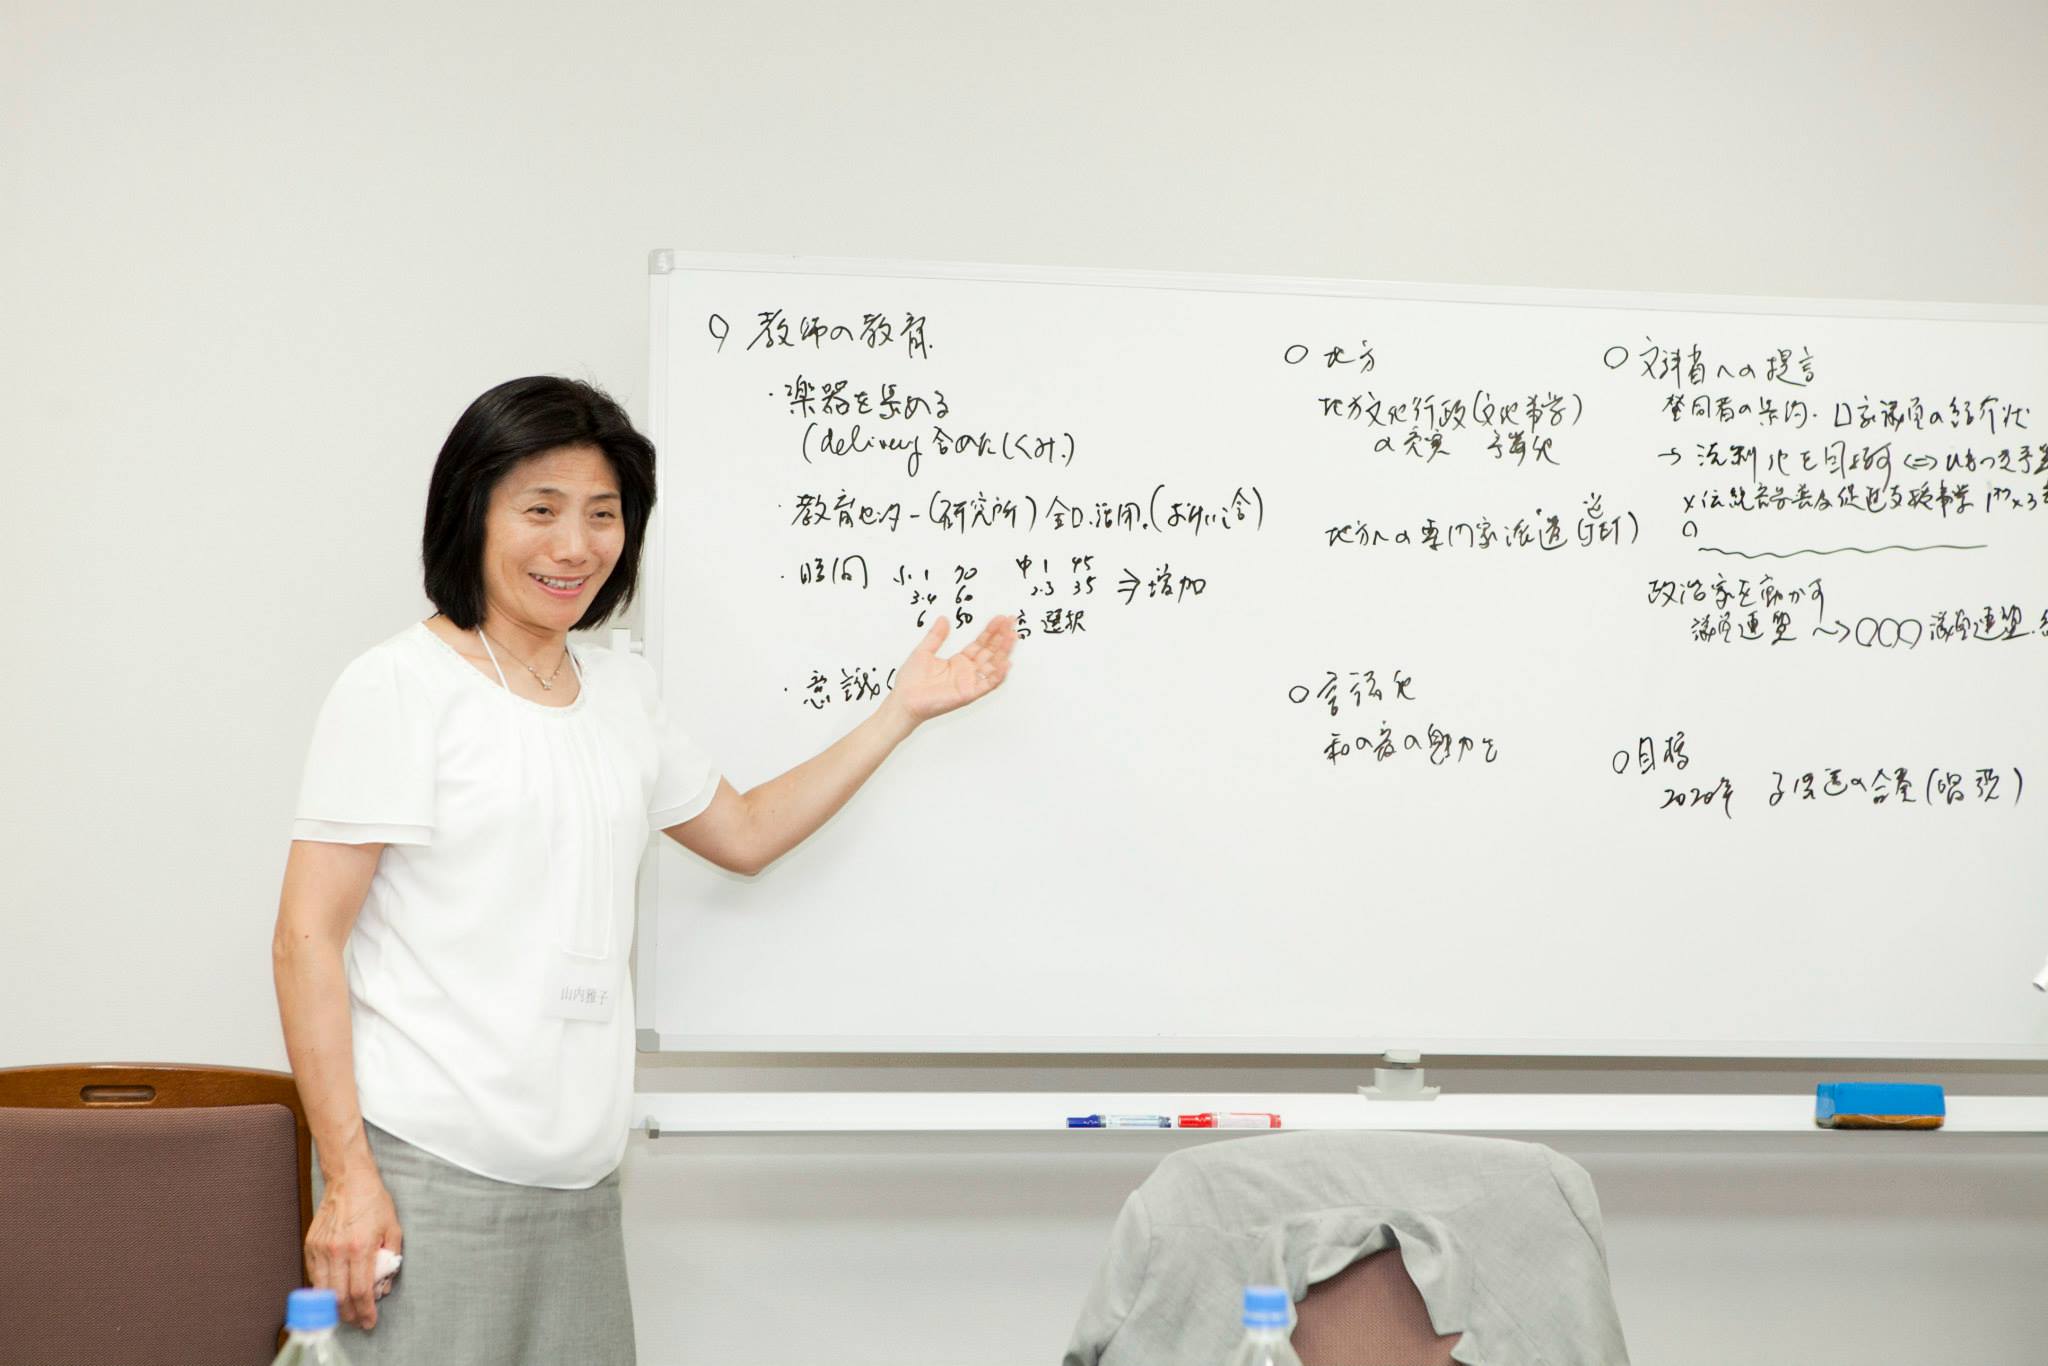 ○ 教師の教育
・楽器を集める
(delivery 含めたしくみ.)
・教育センター(研究所) 全国.活用.(お祈い含)
・時間 小. 1 70 中 1 45 ⇒増加
3.4 60 2.3 35
6 50 高 選択
・意識
○ 地方
地方文化行政(文化事業)
の充実 予算化
地方への専門家派遣 (JET)
○ 言語化
和の音の魅力を
○ 文科省への提言
賛同者の集約. 国家議員の紹介状
→ 法制化を目指す ⇔
伝統音楽普及促進支援事業
政治家を動かす
議員連盟 〜→○○○議員連盟.
○ 目標
2020年 子供達の合奏(唱 歌)
山内雅子